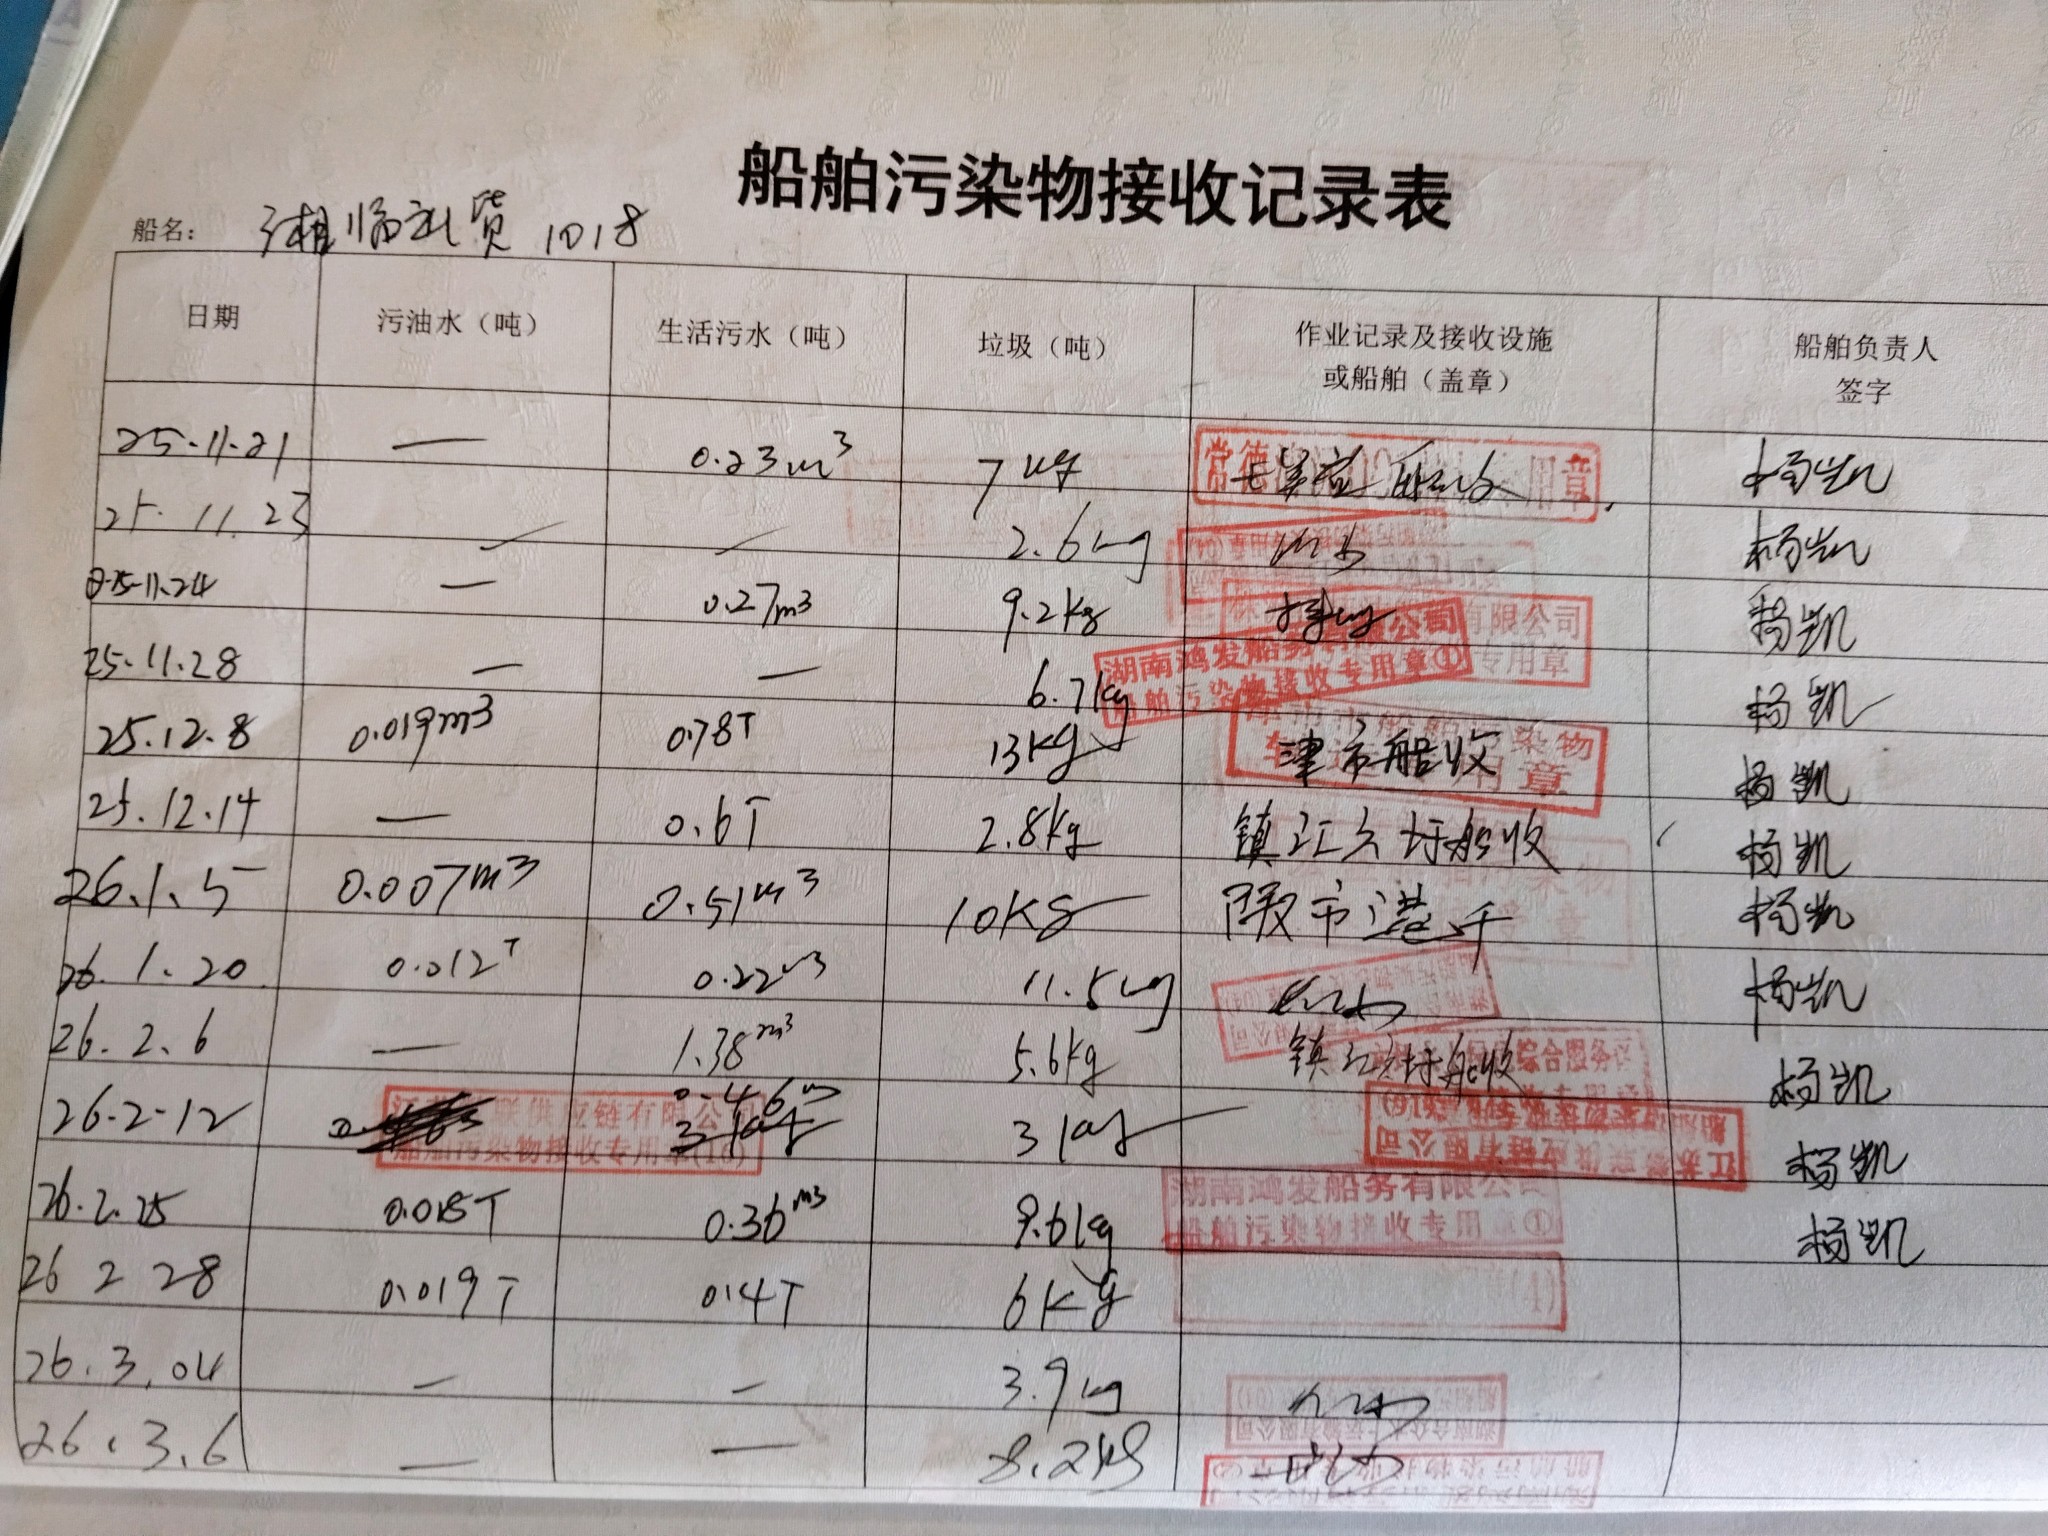 船舶污染物接收记录表
船名： 湘临澧货 1018
日期 污油水（吨） 生活污水（吨） 垃圾（吨） 作业记录及接收设施或船舶（盖章） 船舶负责人签字
25.11.21 — 0.23m³ 7kg 杨凯
25.11.23 — — 2.6kg 杨凯
25.11.24 — 0.27m³ 9.2kg 杨凯
25.11.28 — — 6.7kg 湖南鸿发船务有限公司 船舶污染物接收专用章① 杨凯
25.12.8 0.019m³ 0.78T 13kg 津市船收 杨凯
25.12.14 — 0.6T 2.8kg 镇江六圩船收 杨凯
26.1.5 0.007m³ 0.51m³ 10KG 杨凯
26.1.20 0.012T 0.22m³ 11.5kg 杨凯
26.2.6 — 1.38m³ 5.6kg 镇江六圩船收 杨凯
26.2.12 联供应链有限公司 船舶污染物接收专用章(16) 3kg 杨凯
26.2.25 0.015T 0.36m³ 9.6kg 湖南鸿发船务有限公司 船舶污染物接收专用章① 杨凯
26 2 28 0.019T 0.4T 6Kg
26.3.04 — — 3.9kg
26.3.6 — — 8.2kg